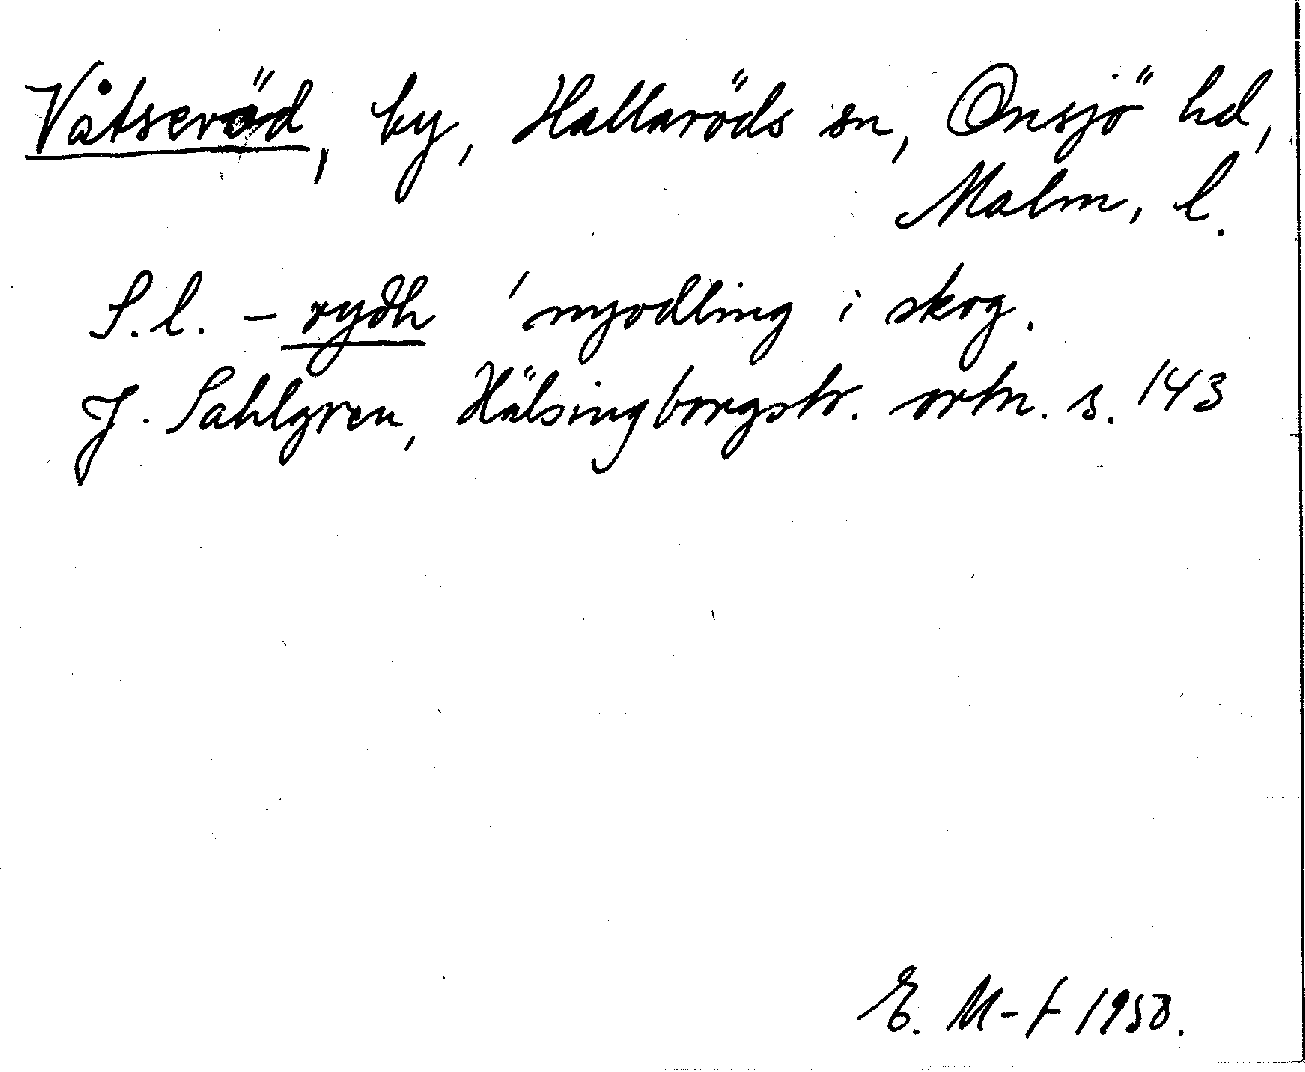 Våtseröd, by, Hallaröds sn, Onsjö hd,
Malm. l.
S.l. - rydh 'nyodling i skog.
J. Sahlgren, Hälsingborgstr. ortn. s. 143
E. M-f 1950.